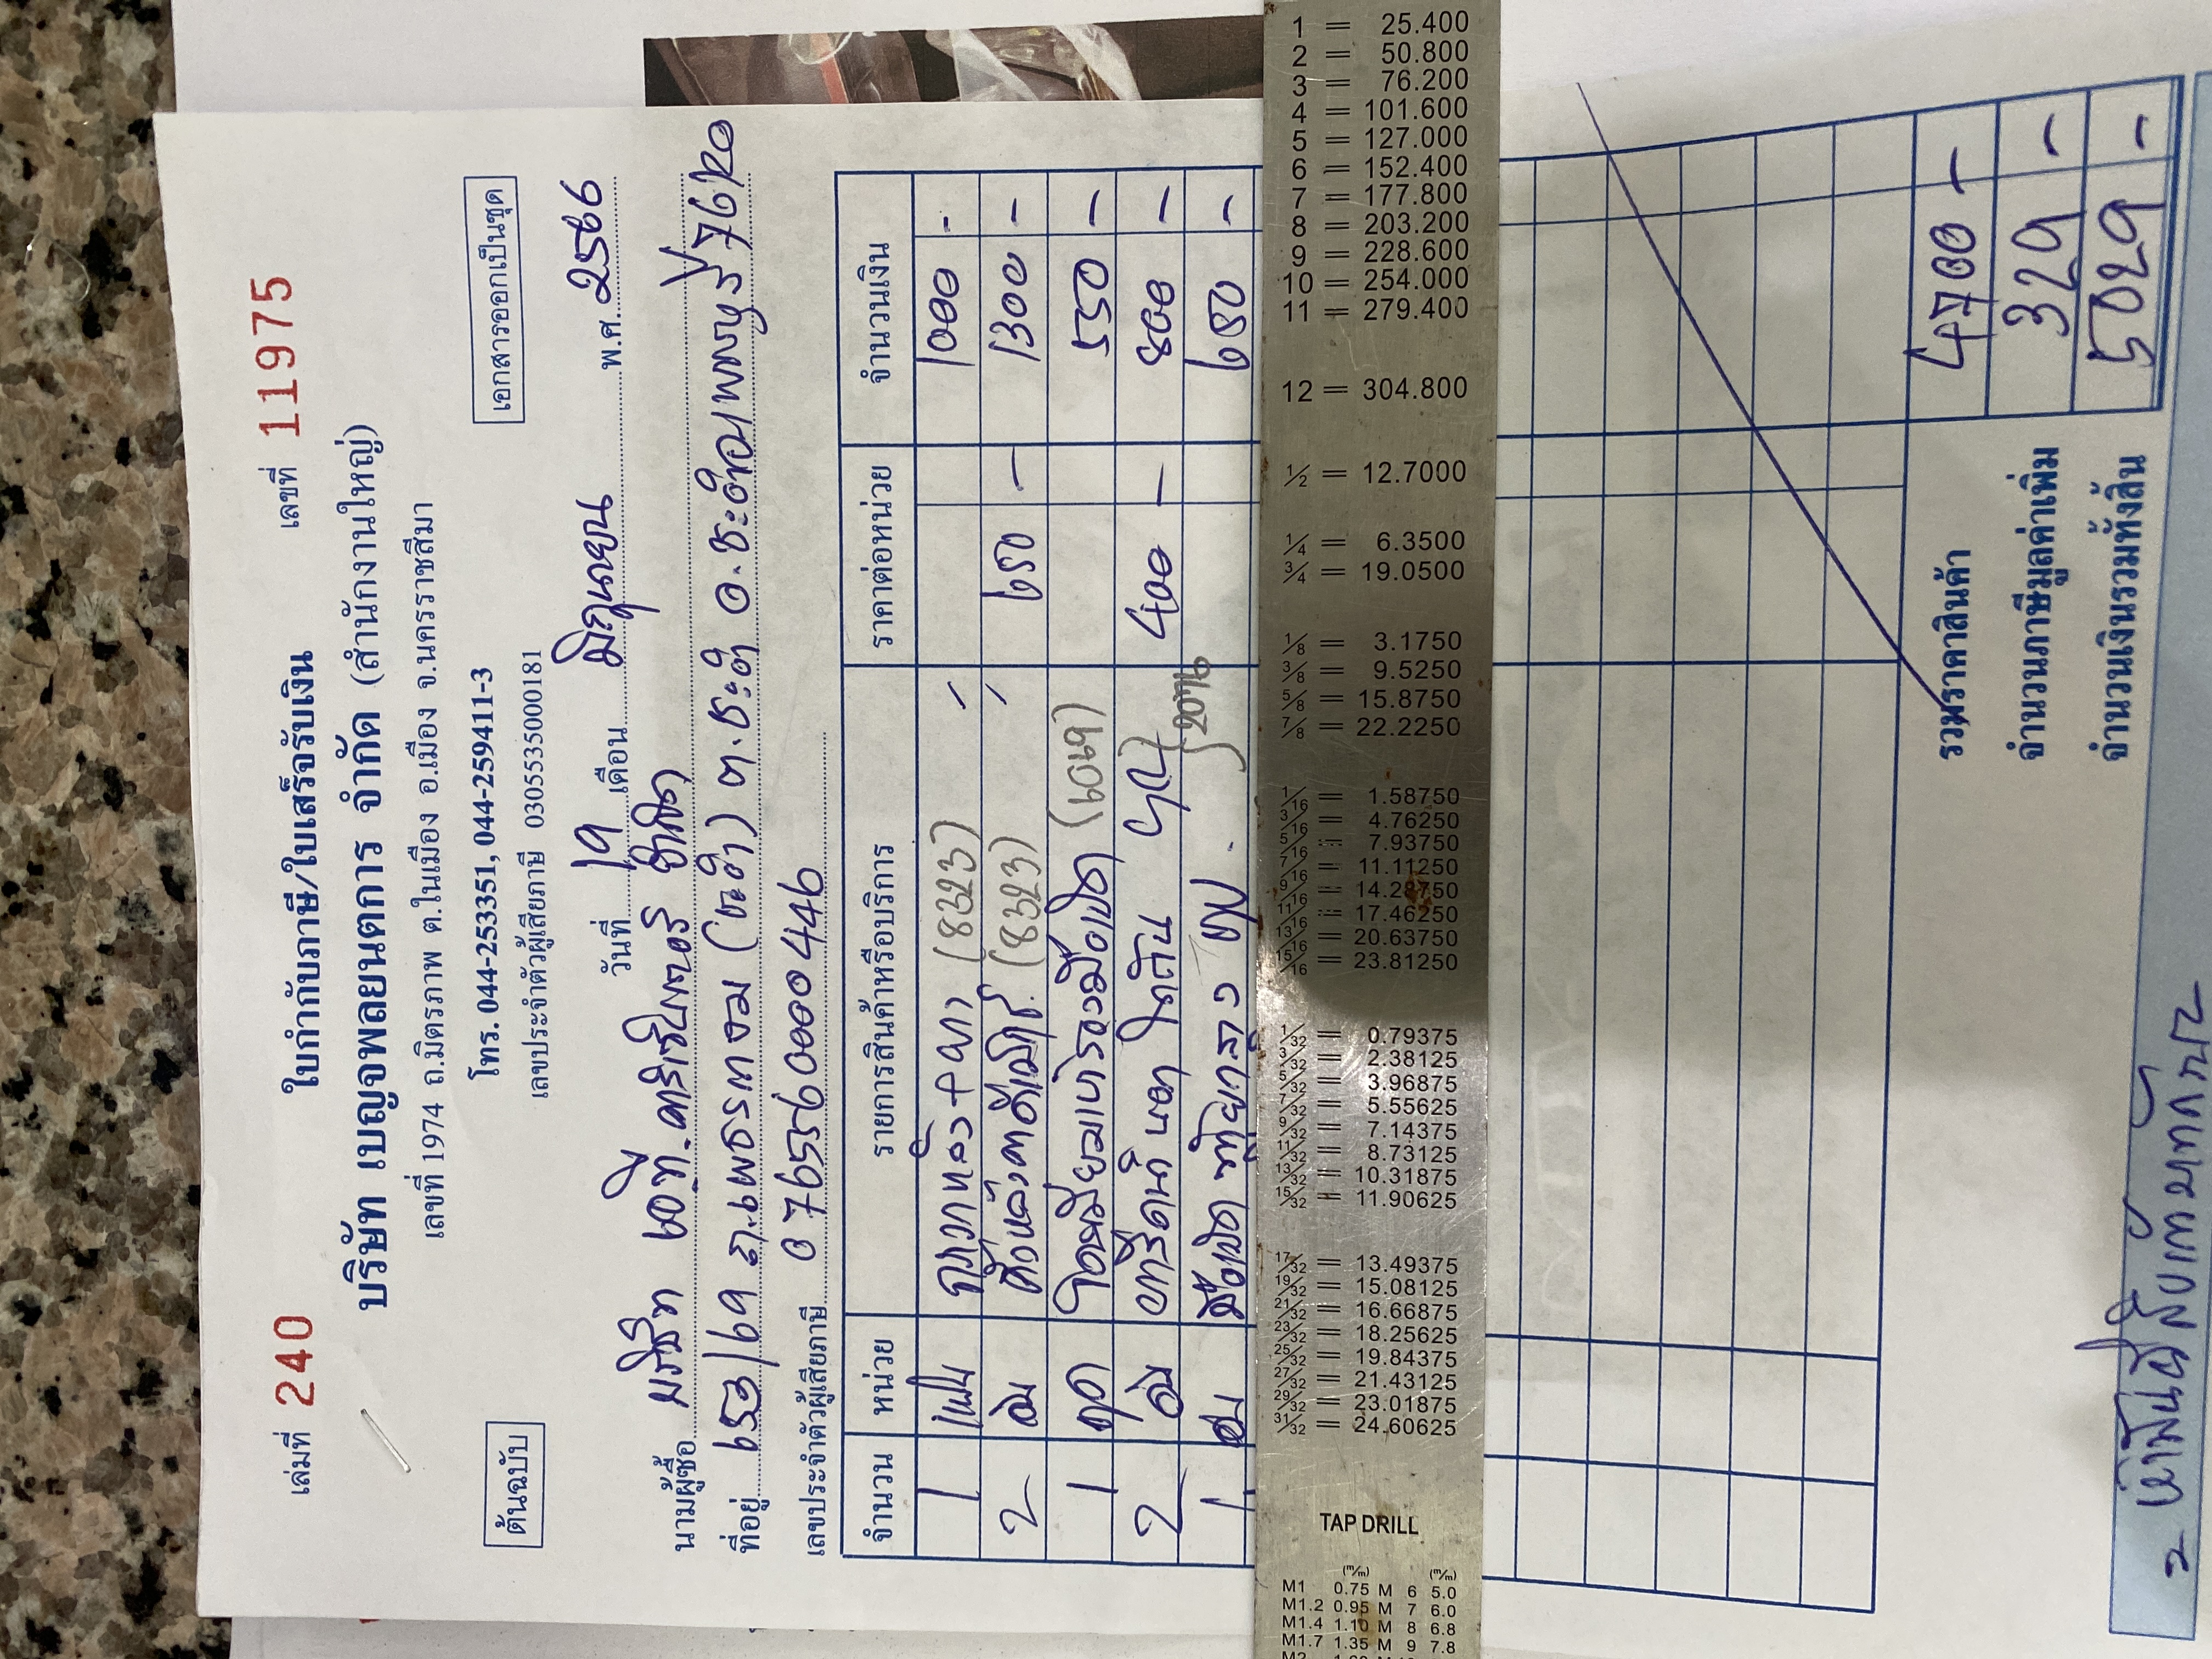 เล่มที่ 240
เลขที่ 11975
ใบกำกับภาษี/ใบเสร็จรับเงิน
บริษัท เบญจพลยนตการ จำกัด (สำนักงานใหญ่)
เลขที่ 1974 ถ.มิตรภาพ ต.ในเมือง อ.เมือง จ.นครราชสีมา
โทร. 044-253351, 044-259411-3
ต้นฉบับ
เอกสารออกเป็นชุด
เลขประจำตัวผู้เสียภาษี 0305535000181
วันที่ 19 เดือน มิถุนายน พ.ศ. 2566
นามผู้ซื้อ บริษัท เอ.ที. จำกัด
ที่อยู่ 653/69 ต.ชะอำ อ.ชะอำ จ.เพชรบุรี 76120
เลขประจำตัวผู้เสียภาษี 0765560000446
จำนวน หน่วย รายการสินค้าหรือบริการ ราคาต่อหน่วย จำนวนเงิน
1 (8323) 1000 -
2 อัน (8323) 650 - 1300 -
1 ชุด (6069) 550 -
2 อัน 400 - 800 -
1 650 -
รวมราคาสินค้า 4700 -
จำนวนภาษีมูลค่าเพิ่ม 329 -
จำนวนเงินรวมทั้งสิ้น 5029 -
1 = 25.400
2 = 50.800
3 = 76.200
4 = 101.600
5 = 127.000
6 = 152.400
7 = 177.800
8 = 203.200
9 = 228.600
10 = 254.000
11 = 279.400
12 = 304.800
1/2 = 12.7000
1/4 = 6.3500
3/4 = 19.0500
1/8 = 3.1750
3/8 = 9.5250
5/8 = 15.8750
7/8 = 22.2250
1/16 = 1.58750
3/16 = 4.76250
5/16 = 7.93750
7/16 = 11.11250
9/16 = 14.28750
11/16 = 17.46250
13/16 = 20.63750
15/16 = 23.81250
1/32 = 0.79375
3/32 = 2.38125
5/32 = 3.96875
7/32 = 5.55625
9/32 = 7.14375
11/32 = 8.73125
13/32 = 10.31875
15/32 = 11.90625
17/32 = 13.49375
19/32 = 15.08125
21/32 = 16.66875
23/32 = 18.25625
25/32 = 19.84375
27/32 = 21.43125
29/32 = 23.01875
31/32 = 24.60625
TAP DRILL
(m/m) (m/m)
M1 0.75 M 6 5.0
M1.2 0.95 M 7 6.0
M1.4 1.10 M 8 6.8
M1.7 1.35 M 9 7.8